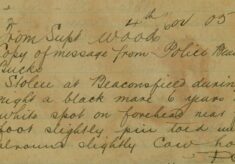 4th Nov 05
From Supt Woods
Copy of message from Police
Bucks
Stolen at Beaconsfield during
night a black mare 6 years
white spot on forehead near
foot slightly
slightly Cow ho